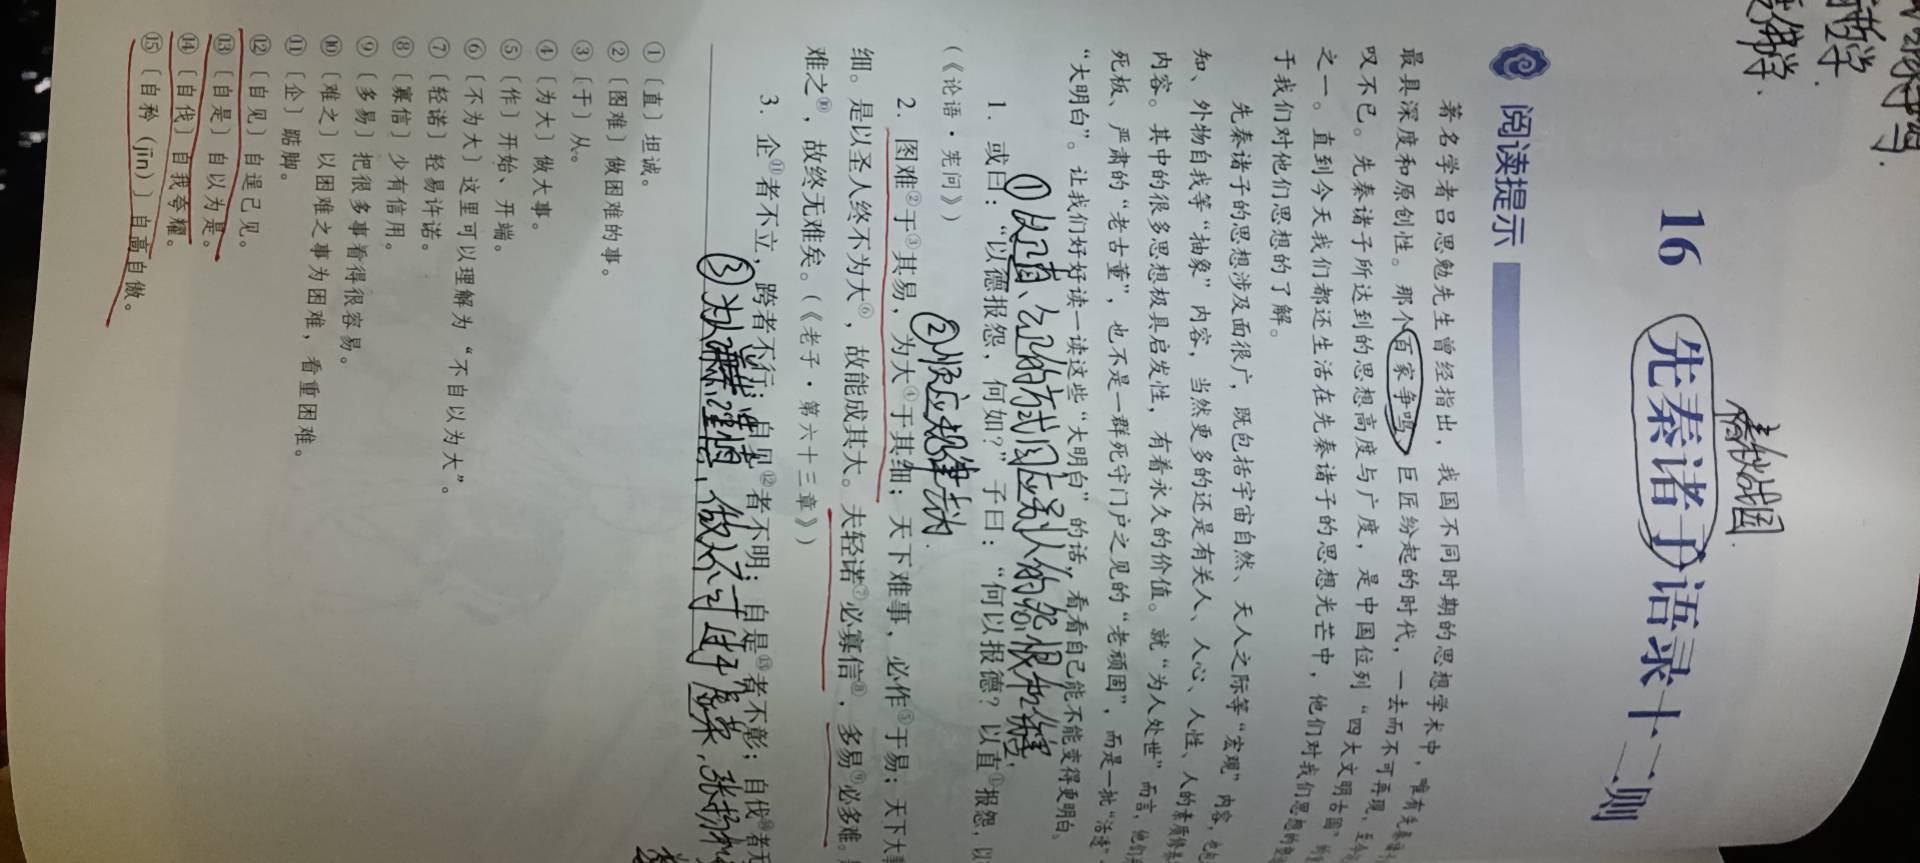 春秋战国
16 先秦诸子语录十二则
阅读提示
著名学者吕思勉先生曾经指出，我国不同时期的思想学术中，唯有先秦
最具深度和原创性。那个百家争鸣、巨匠纷起的时代，一去而不可再现，至今
叹不已。先秦诸子所达到的思想高度与广度，是中国位列“四大文明古国”
之一。直到今天我们都还生活在先秦诸子的思想光芒中，他们对我们思想的
于我们对他们思想的了解。
先秦诸子的思想涉及面很广，既包括宇宙自然、天人之际等“宏观”内容，也
知、外物自我等“抽象”内容，当然更多的还是有关人、人心、人性、人的素质修养
内容。其中的很多思想极具启发性，有着永久的价值。就“为人处世”而言，他们
死板、严肃的“老古董”，也不是一群死守门户之见的“老顽固”，而是一批“活
“大明白”。让我们好好读一读这些“大明白”的话，看看自己能不能变得更明白。
①以正直、公正的方式回应别人的怨恨和
1. 或曰：“以德报怨，何如？”子曰：“何以报德？以直①报怨，以
（《论语·宪问》）
②顺应规律去做
2. 图难②于③其易，为大④于其细；天下难事，必作⑤于易；天下大
细。是以圣人终不为大⑥，故能成其大。夫轻诺⑦必寡信⑧，多易⑨必多难。
难之⑩，故终无难矣。（《老子·第六十三章》）
3. 企⑪者不立，跨者不行；自见⑫者不明；自是⑬者不彰；自伐⑭者无
③为人
①〔直〕坦诚。
②〔图难〕做困难的事。
③〔于〕从。
④〔为大〕做大事。
⑤〔作〕开始、开端。
⑥〔不为大〕这里可以理解为“不自以为大”。
⑦〔轻诺〕轻易许诺。
⑧〔寡信〕少有信用。
⑨〔多易〕把很多事看得很容易。
⑩〔难之〕以困难之事为困难，看重困难。
⑪〔企〕踮脚。
⑫〔自见〕自逞己见。
⑬〔自是〕自以为是。
⑭〔自伐〕自我夸耀。
⑮〔自矜（jīn）〕自高自傲。